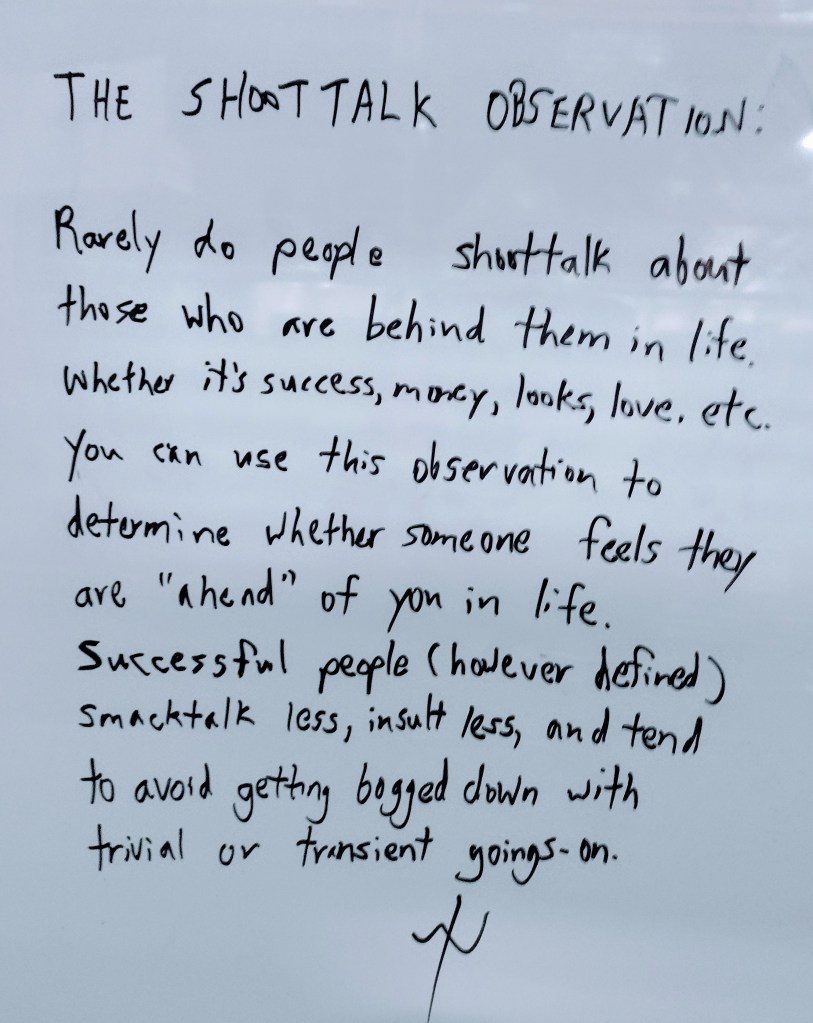 THE SHOOTTALK OBSERVATION:
Rarely do people shoottalk about
those who are behind them in life.
Whether it's success, money, looks, love, etc.
You can use this observation to
determine whether someone feels they
are "ahead" of you in life.
Successful people (however defined)
smacktalk less, insult less, and tend
to avoid getting bogged down with
trivial or transient goings-on.